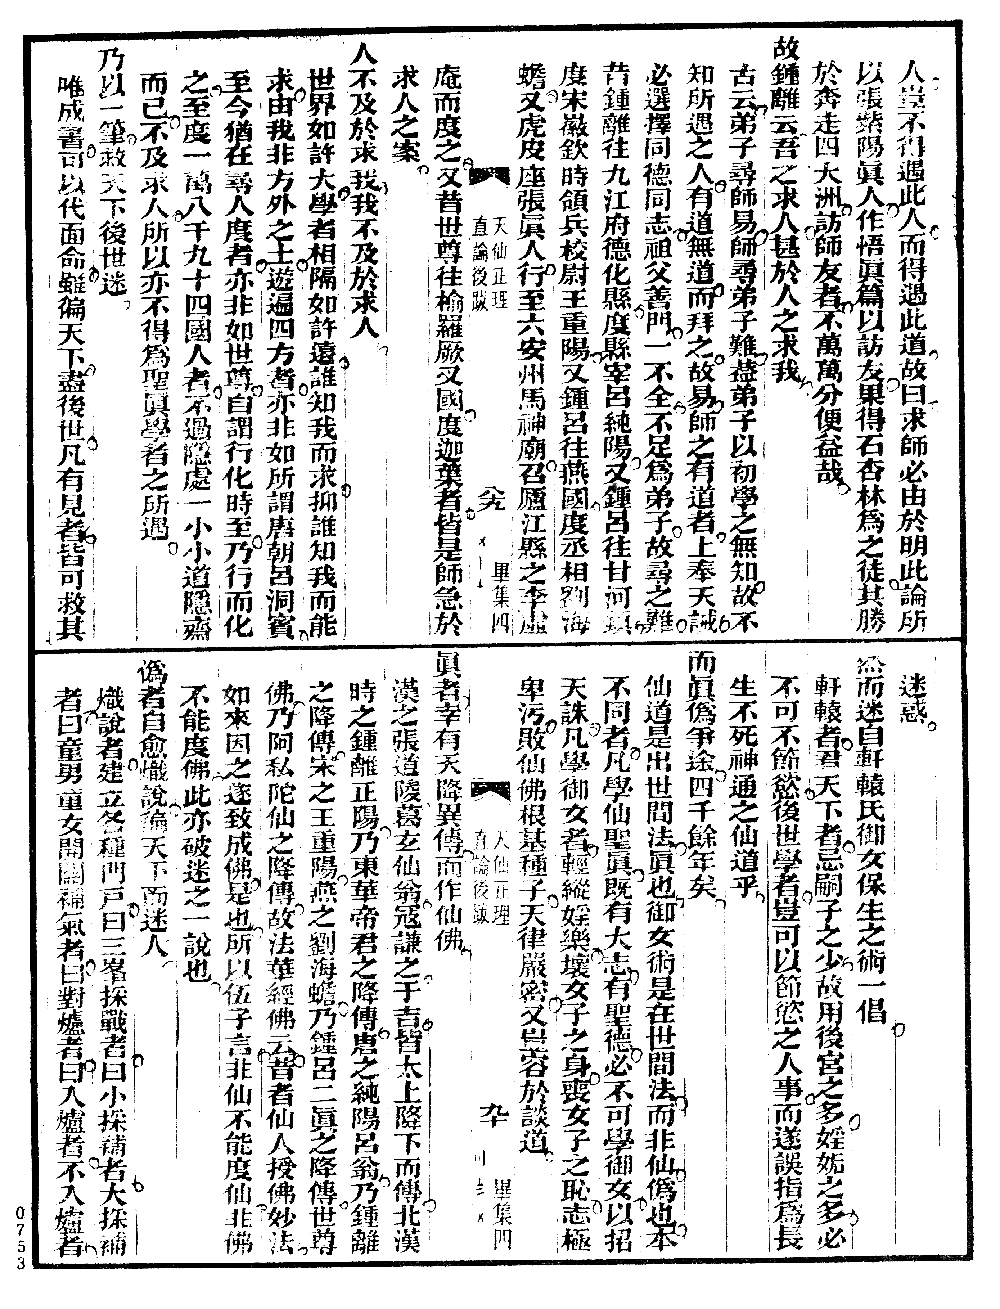 人豈不得遇此人而得遇此道故曰求師必由於明此論所
以張紫陽眞人作悟眞篇以訪友果得石杏林爲之徒其勝
於奔走四大洲訪師友者不萬萬分便益哉
故鍾離云吾之求人甚於人之求我
古云弟子尋師易師尋弟子難葢弟子以初學之無知故不
知所遇之人有道無道而拜之故易師之有道者上奉天誡
必選擇同德同志祖父善門一不全不足爲弟子故尋之難
昔鍾離往九江府德化縣度縣宰呂純陽又鍾呂往甘河鎮
度宋巖欽時領兵校尉王重陽又鍾呂往燕國度丞相劉海
蟾又虎皮座張眞人行至六安州馬神廟召廬江縣之李虛
天仙正理
直論後跋
六九
畢集四
庵而度之又昔世尊往榆羅厥义國度迦葉者皆是師急於
求人之案
人不及於求我我不及於求人
世界如許大學者相隔如許遠誰知我而求抑誰知我而能
求由我非方外之士遊遍四方者亦非如所謂唐朝呂洞賓
至今猶在尋人度者亦非如世尊自謂行化時至乃行而化
之至度一萬八千九十四國人者不過隱處一小小道隱齋
而已不及求人所以亦不得爲聖眞學者之所遇
乃以一筆救天下後世迷
唯成書可以代面命雖徧天下盡後世凡有見者皆可救其
迷惑
然而迷自軒轅氏御女保生之術一倡
軒轅者君天下者忌嗣子之少故用後宮之多婬妬之多必
不可不節慾後世學者豈可以節慾之人事而遂誤指爲長
生不死神通之仙道乎
而眞僞爭途四千餘年矣
仙道是出世間法眞也御女術是在世間法而非仙僞也本
不同者凡學仙聖眞既有大志有聖德必不可學御女以招
天誅凡學御女者輕縱婬樂壞女子之身喪女子之恥志極
卑污敗仙佛根基種子天律嚴密又豈容於談道
天仙正理
直論後跋
九十
畢集四
眞者幸有天降異傳而作仙佛
漢之張道陵葛玄仙翁冦謙之于吉皆太上降下而傳北漢
時之鍾離正陽乃東華帝君之降傳唐之純陽呂翁乃鍾離
之降傳宋之王重陽燕之劉海蟾乃鍾呂二眞之降傳世尊
佛乃阿私陀仙之降傳故法華經佛云昔者仙人授佛妙法
如來因之遂致成佛是也所以伍子言非仙不能度仙非佛
不能度佛此亦破迷之一說也
僞者自愈熾說徧天下而迷人
熾說者建立各種門戶曰三峯採戰者曰小採補者大採補
者曰童男童女開關補氣者曰對爐者曰入爐者不入爐者
0753